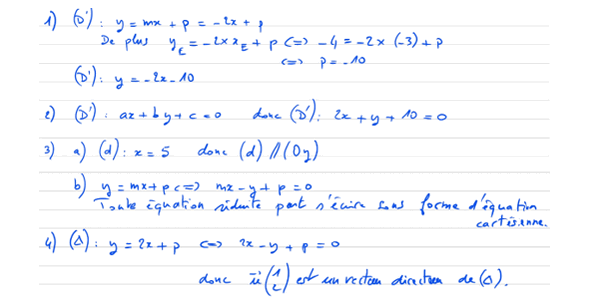 1) (D'): y = mx + p = -2x + p
De plus y_E = -2 × x_E + p <=> -4 = -2 × (-3) + p
<=> p = -10
(D'): y = -2x - 10
2) (D'): ax + by + c = 0 donc (D'): 2x + y + 10 = 0
3) a) (d): x = 5 donc (d) // (Oy)
b) y = mx + p <=> mx - y + p = 0
Toute équation réduite peut s'écrire sous forme d'équation
cartésienne.
4) (Δ): y = 2x + p <=> 2x - y + p = 0
donc u⃗(1 2) est un vecteur directeur de (Δ).